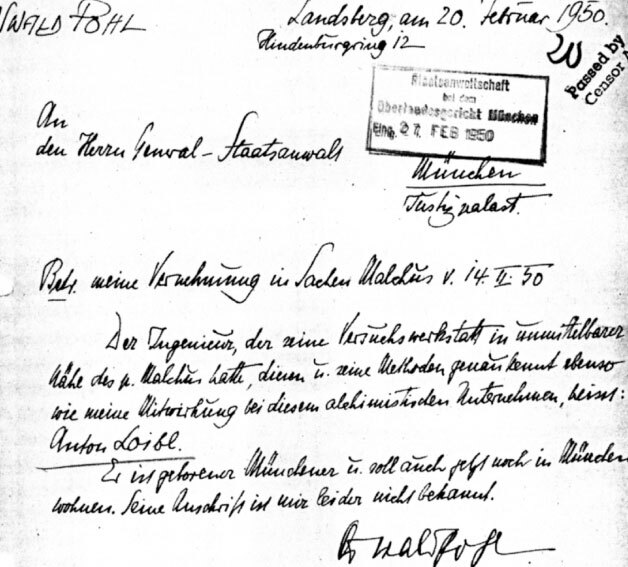 OSWALD POHL
Landsberg, am 20. Februar 1950.
Hindenburgring 12
20
Passed by
Censor
Staatsanwaltschaft
bei dem
Oberlandesgericht München
Eing. 27. FEB 1950
An
den Herrn General-Staatsanwalt
München
Justizpalast.
Betr. meine Vernehmung in Sachen Malchus v. 14. II. 50
Der Ingenieur, der seine Versuchswerkstatt in unmittelbarer
Nähe des p. Malchus hatte, diesen u. seine Methoden genau kennt ebenso
wie meine Mitwirkung bei diesem alchimistischen Unternehmen, heisst:
Anton Loibl.
Er ist geborener Münchener u. soll auch jetzt noch in München
wohnen. Seine Anschrift ist mir leider nicht bekannt.
Oswald Pohl